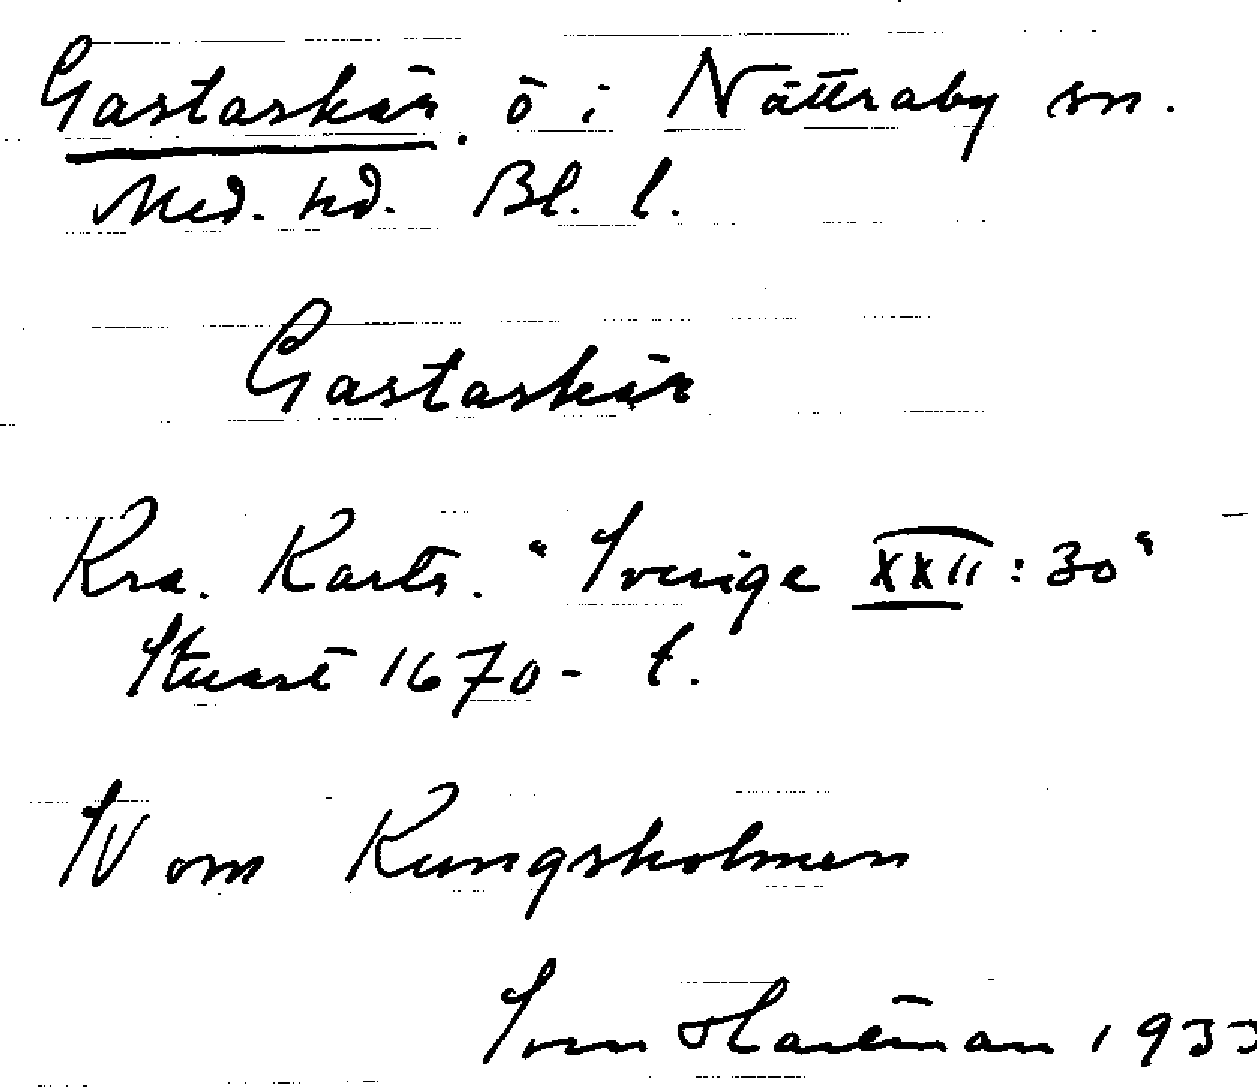 Gastaskär. ö i Nättraby sn.
Med. hd. Bl. l.
Gastaskär
Kra. Kartv. "Sverige XXII:30"
Stuart 1670- t.
SV om Kungsholmen
Sven Hartman 1933